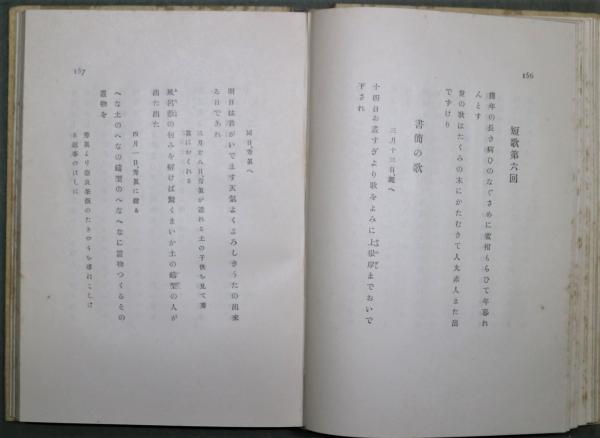 156
短歌第六回
幾年の長き病ひのなぐさめに蜜柑もらひて年暮れ
んとす
世の歌はたくみの末にかたむきて人丸赤人また出
ですけり
書簡の歌
三月十三日麓へ
十四日お晝すぎより歌をよみに上根岸までおいで
下され
157
同日秀眞へ
明日は君がいでます天氣よくよろしきうたの出來
る日であれ
三月廿八日秀眞が造れる土の子供を見て秀
眞におくれる
風呂敷の包みを解けば驚くまいか土の鑄型の人が
出た出た
四月一日、秀眞に贈る
へな土のへなの鑄型のへなへなに置物つくるその
置物を
秀眞より奈良茶飯の